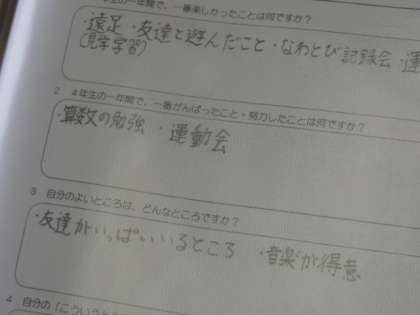 生の一年間で、一番楽しかったことは何ですか？
・遠足 ・友達と遊んだこと ・なわとび記録会 運
(見学学習)
2 4年生の一年間で、一番がんばったこと・努力したことは何ですか？
・算数の勉強 ・運動会
3 自分のよいところは、どんなところですか？
・友達がいっぱいいるところ ・音楽が得意
4 自分の「こういうと